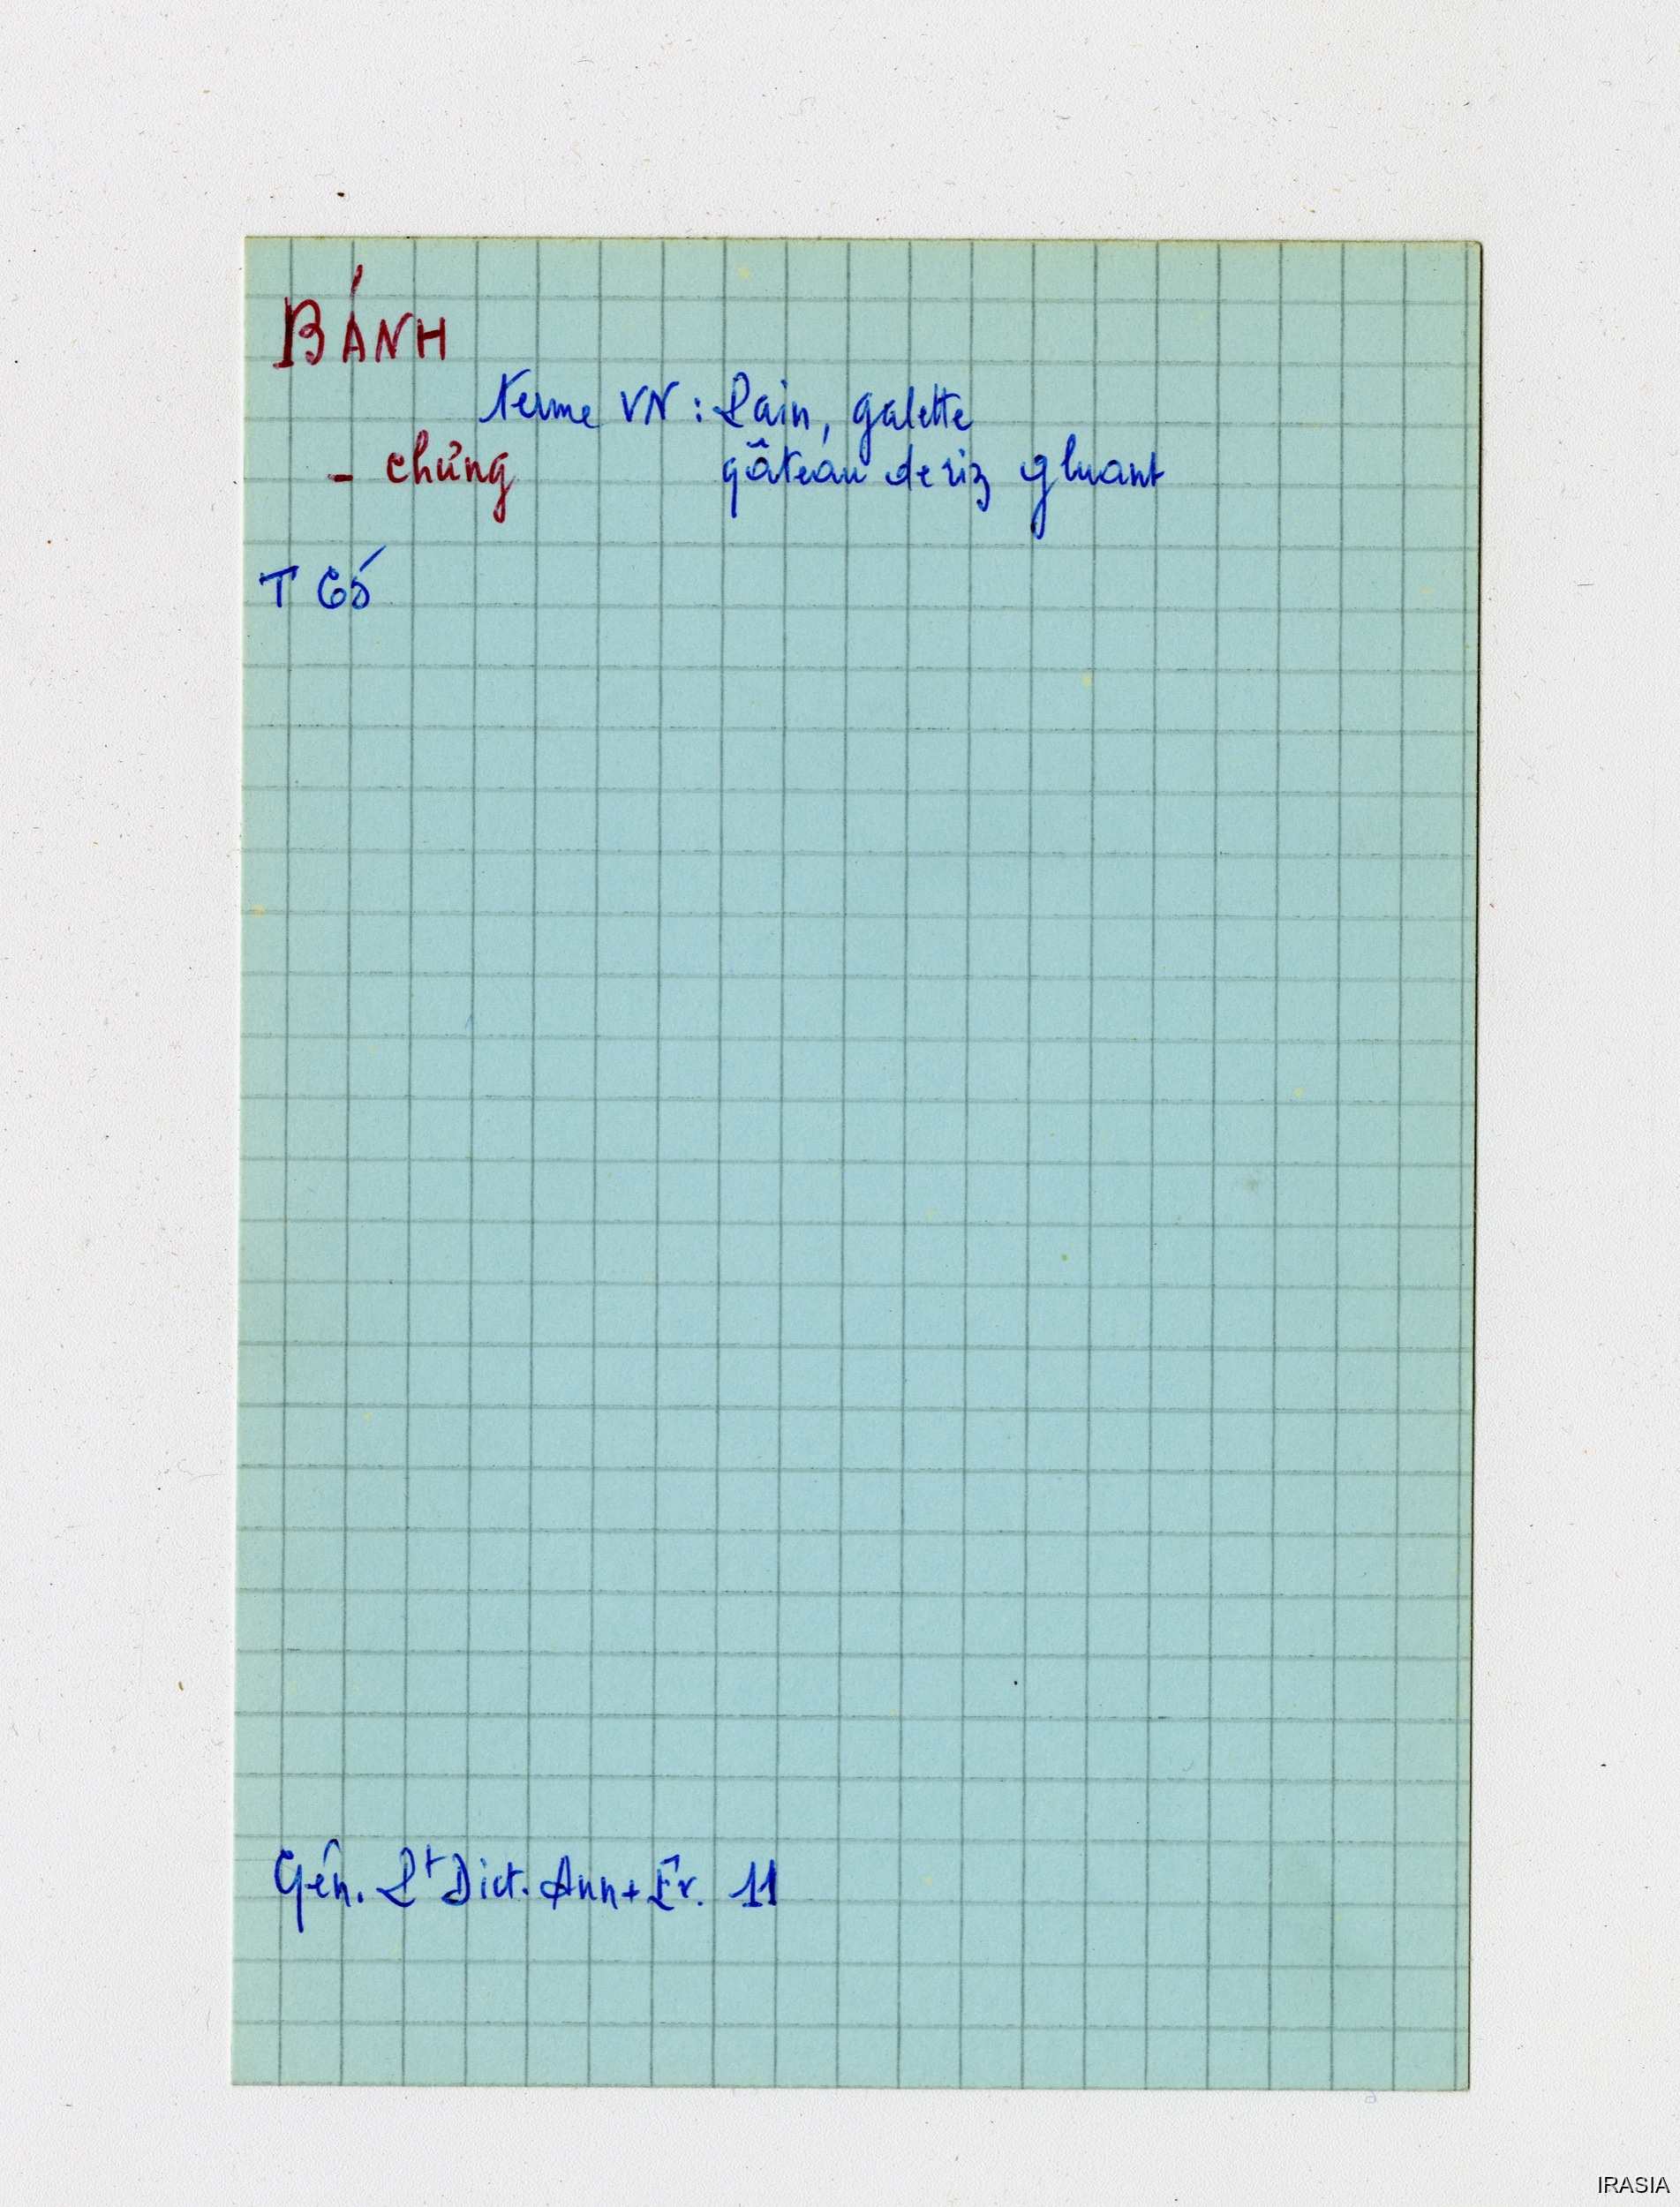 BÁNH
terme VN : Pain, galette
- chủng gâteau de riz gluant
T 65
Gén. Pt Dict. Ann + Fr. 11
IRASIA